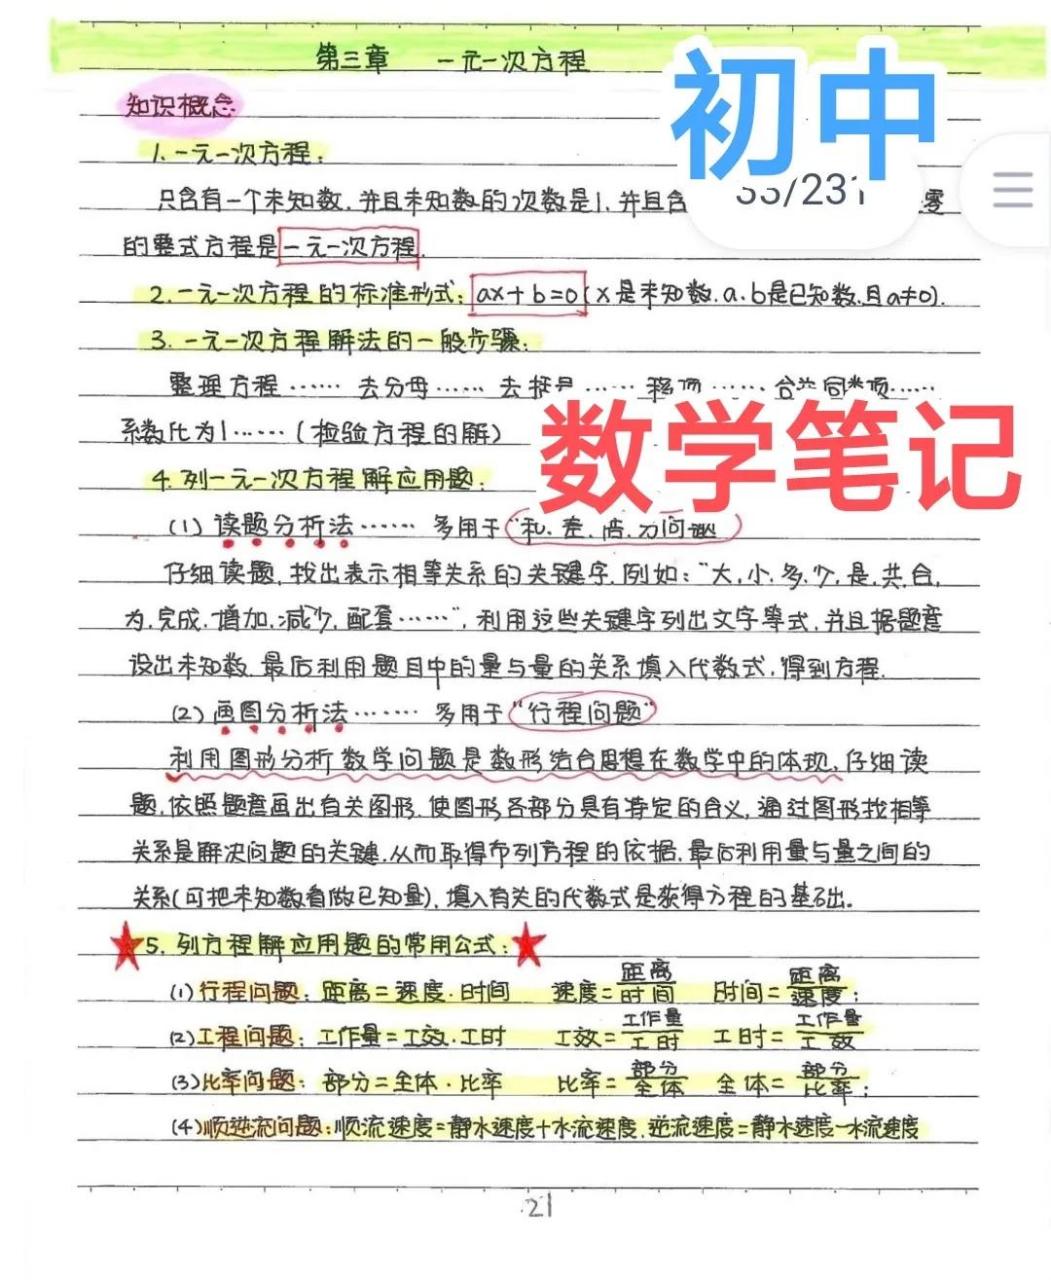 第三章 一元一次方程
初中
知识概念
1.一元一次方程:
33/231
只含有一个未知数.并且未知数的次数是1.并且含
零
的整式方程是一元一次方程.
2.一元一次方程的标准形式:ax+b=0(x是未知数.a.b是已知数.且a≠0).
3.一元一次方程解法的一般步骤:
整理方程……去分母……去括号……移项……合并同类项……
系数化为1……(检验方程的解)
数学笔记
4.列一元一次方程解应用题:
(1)读题分析法……多用于"和.差.倍.分问题
仔细读题,找出表示相等关系的关键字.例如:"大.小.多.少.是.共.合.
为.完成.增加.减少.配套……",利用这些关键字列出文字等式,并且据题意
设出未知数.最后利用题目中的量与量的关系填入代数式,得到方程.
(2)画图分析法……多用于"行程问题"
利用图形分析数学问题是数形结合思想在数学中的体现,仔细读
题,依照题意画出有关图形.使图形各部分具有特定的含义,通过图形找相等
关系是解决问题的关键.从而取得布列方程的依据.最后利用量与量之间的
关系(可把未知数看做已知量),填入有关的代数式是获得方程的基础.
5.列方程解应用题的常用公式:
(1)行程问题:距离=速度·时间 速度=距离/时间 时间=距离/速度;
(2)工程问题:工作量=工效·工时 工效=工作量/工时 工时=工作量/工效
(3)比率问题:部分=全体·比率 比率=部分/全体 全体=部分/比率;
(4)顺逆流问题:顺流速度=静水速度+水流速度.逆流速度=静水速度-水流速度
21